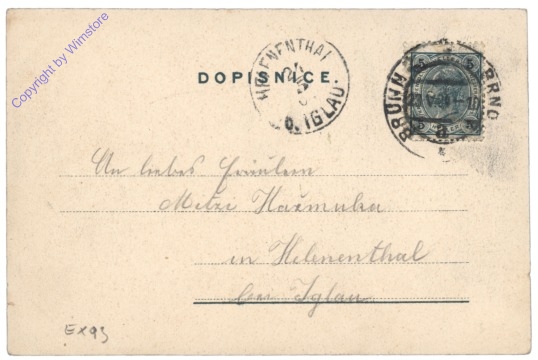 Copyright by Wimstore
DOPISNICE.
HELENENTHAL
b. IGLAU.
BRÜNN BRNO
An liebes Fräulein
Mitzi Hažmuka
in Helenenthal
bei Iglau
EX93